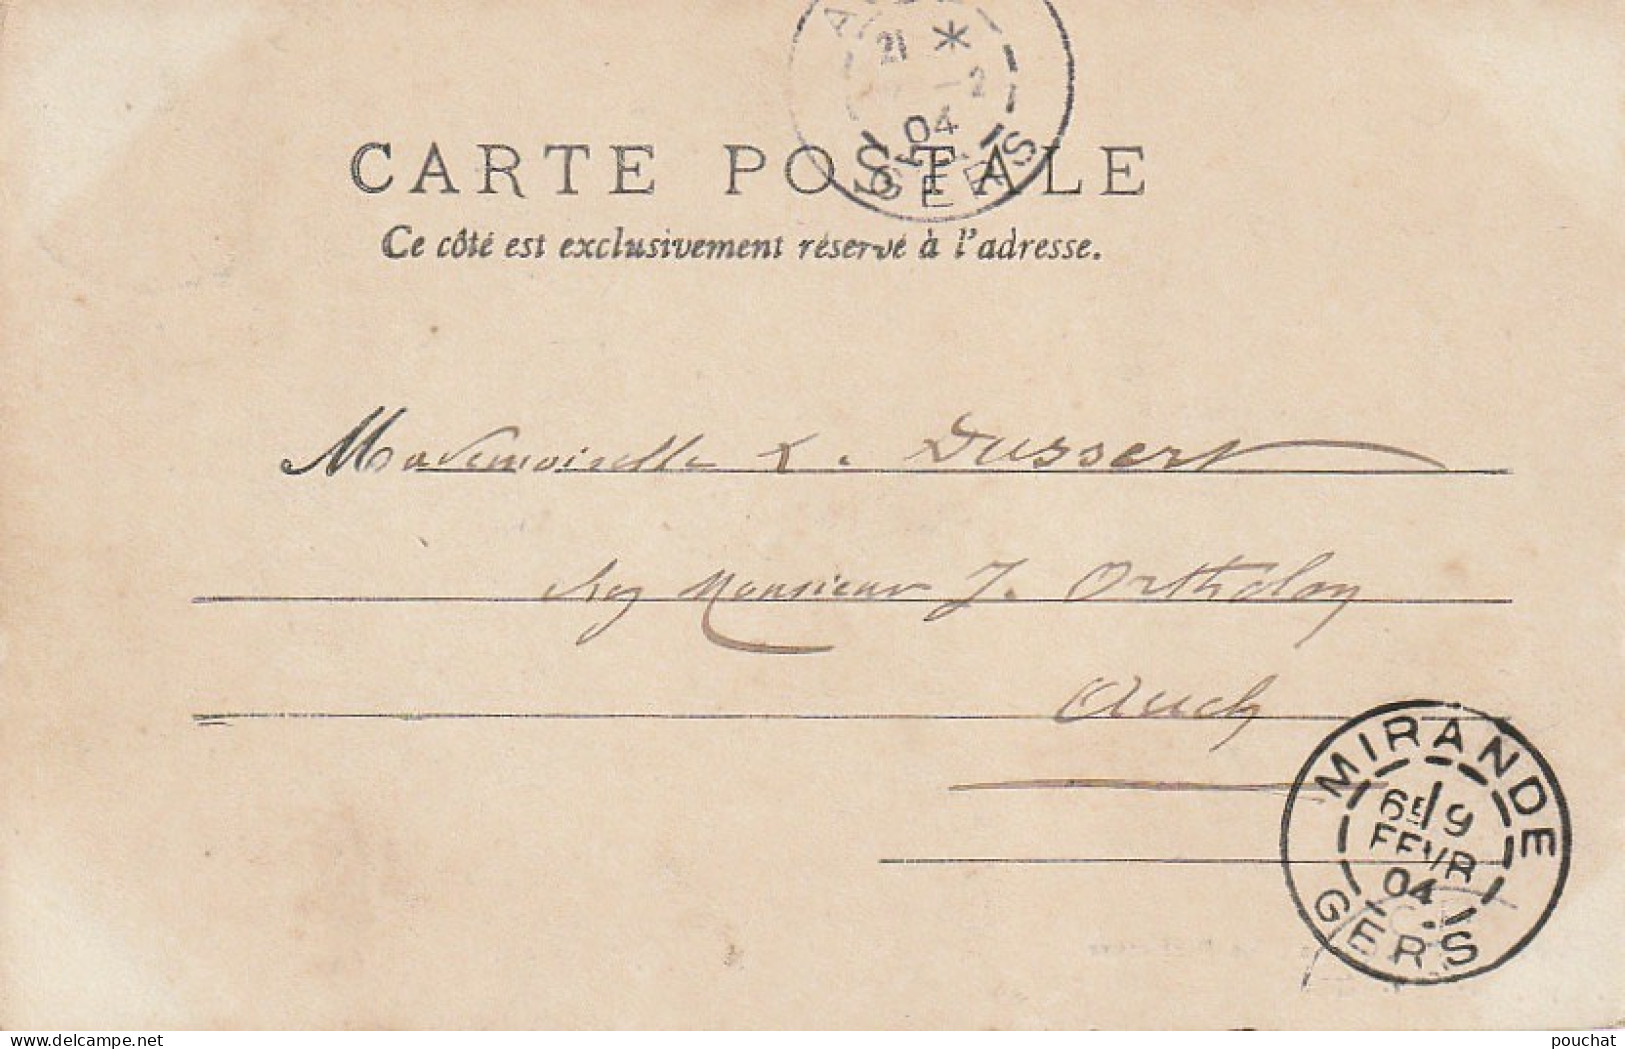 21 *
-2
04
GERS
CARTE POSTALE
Ce côté est exclusivement réservé à l'adresse.
Mademoiselle L. Dussert
chez Monsieur J. Ortholan
Auch
MIRANDE
6E 9
FEVR
04
GERS
delcampe.net
pouchat